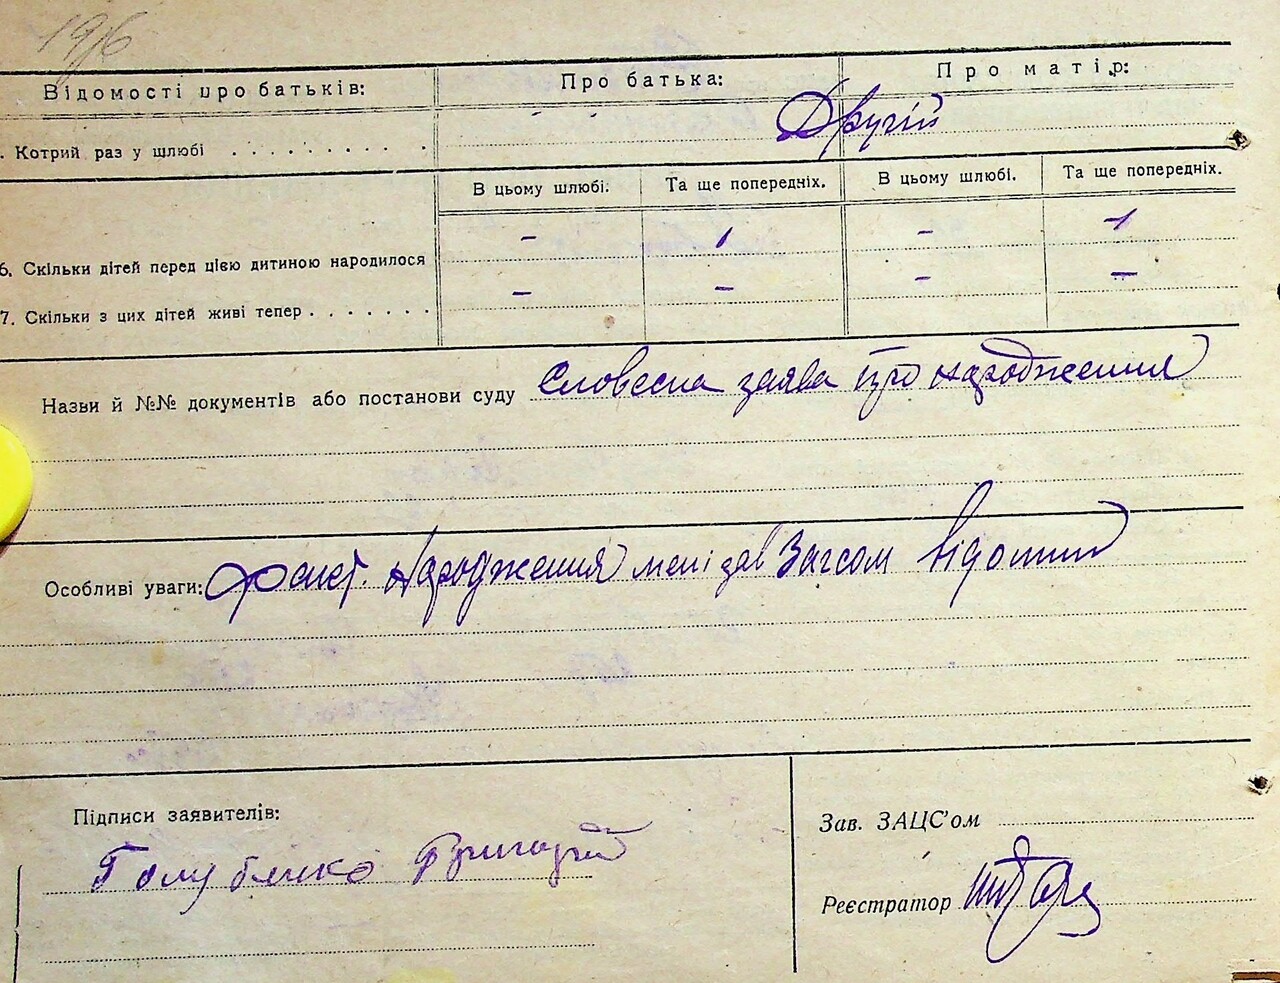 1916
Відомості про батьків: Про батька: Про матір:
. Котрий раз у шлюбі . . . . . . . . . . Другій
В цьому шлюбі. Та ще попередніх. В цьому шлюбі. Та ще попередніх.
6. Скільки дітей перед цією дитиною народилося - 1 - 1
7. Скільки з цих дітей живі тепер . . . . . . . - - - -
Назви й №№ документів або постанови суду Словесна заява про народження
Особливі уваги: Факт. Народження мені зав Загсом відомий
Підписи заявителів:
Зав. ЗАЦС'ом
Голубенко Григорій
Реєстратор